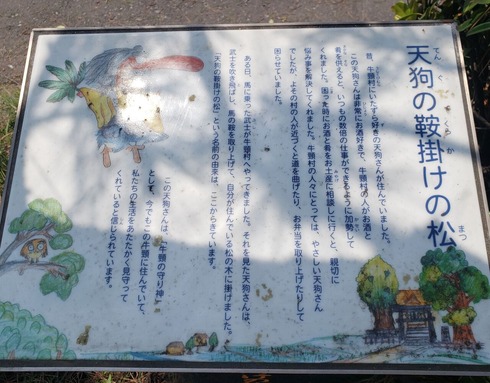 天狗の鞍掛けの松
てんぐ くらか まつ
昔、牛頸村にいたずら好きの天狗さんが住んでいました。
この天狗さんは非常にお酒好きで、牛頸村の人がお酒と
肴を供えると、いつもの数倍の仕事ができるように加勢して
くれました。困った時にお酒と肴をお土産に相談しに行くと、親切に
悩み事を解決してくれました。牛頸村の人々にとっては、やさしい天狗さん
でしたが、よその村の人が近づくと道を曲げたり、お弁当を取り上げたりして
困らせていました。
ある日、馬に乗った武士が牛頸村へやってきました。それを見た天狗さんは、
武士を吹き飛ばし、馬の鞍を取り上げて、自分が住んでいる松の木に掛けました。
「天狗の鞍掛けの松」という名前の由来は、ここからきています。
この天狗さんは、「牛頸の守り神」
として、今でもこの牛頸に住んでいて、
私たちの生活をあたたかく見守って
くれていると信じられています。